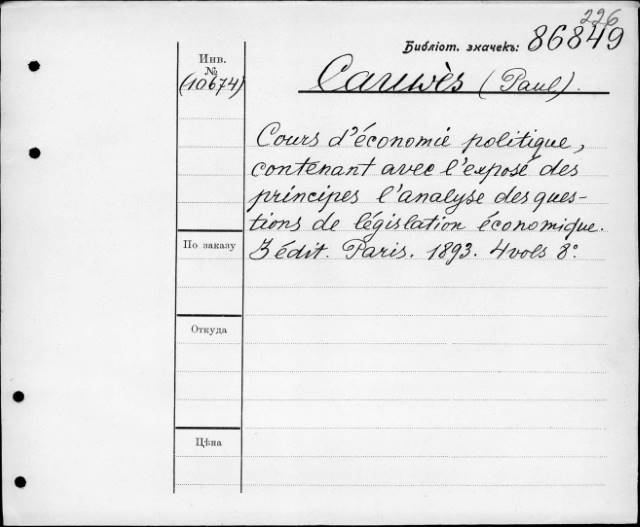 226
Библіот. значекъ: 86849
Инв.
№
(10674)
Cauwès (Paul).
Cours d'économie politique,
contenant avec l'exposé des
principes l'analyse des ques-
tions de législation économique.
3 édit. Paris. 1893. 4 vols 8°.
По заказу
Откуда
Цѣна